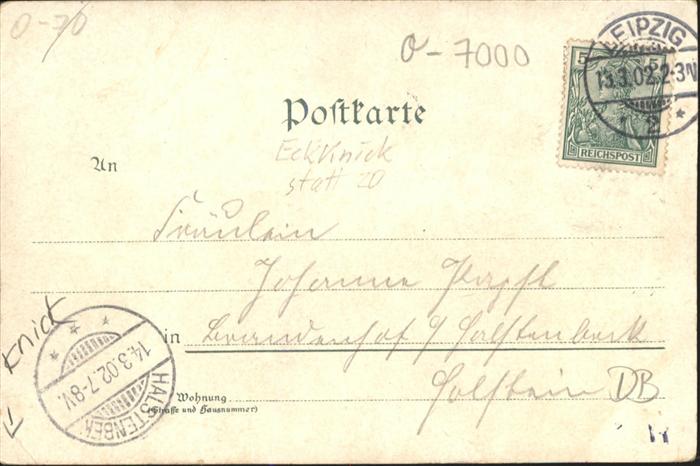 O-70
O-7000
LEIPZIG
13.3.02.2-3N
* 2 *
5 5
REICHSPOST
Poſtkarte
Eckknick
statt 20
An
Fräulein
Johanna
in Brandenhof b/ Halstenbeck
Holstein DB
Wohnung
(Straße und Hausnummer)
Knick
14.3.02.7-8V.
HALSTENBEK